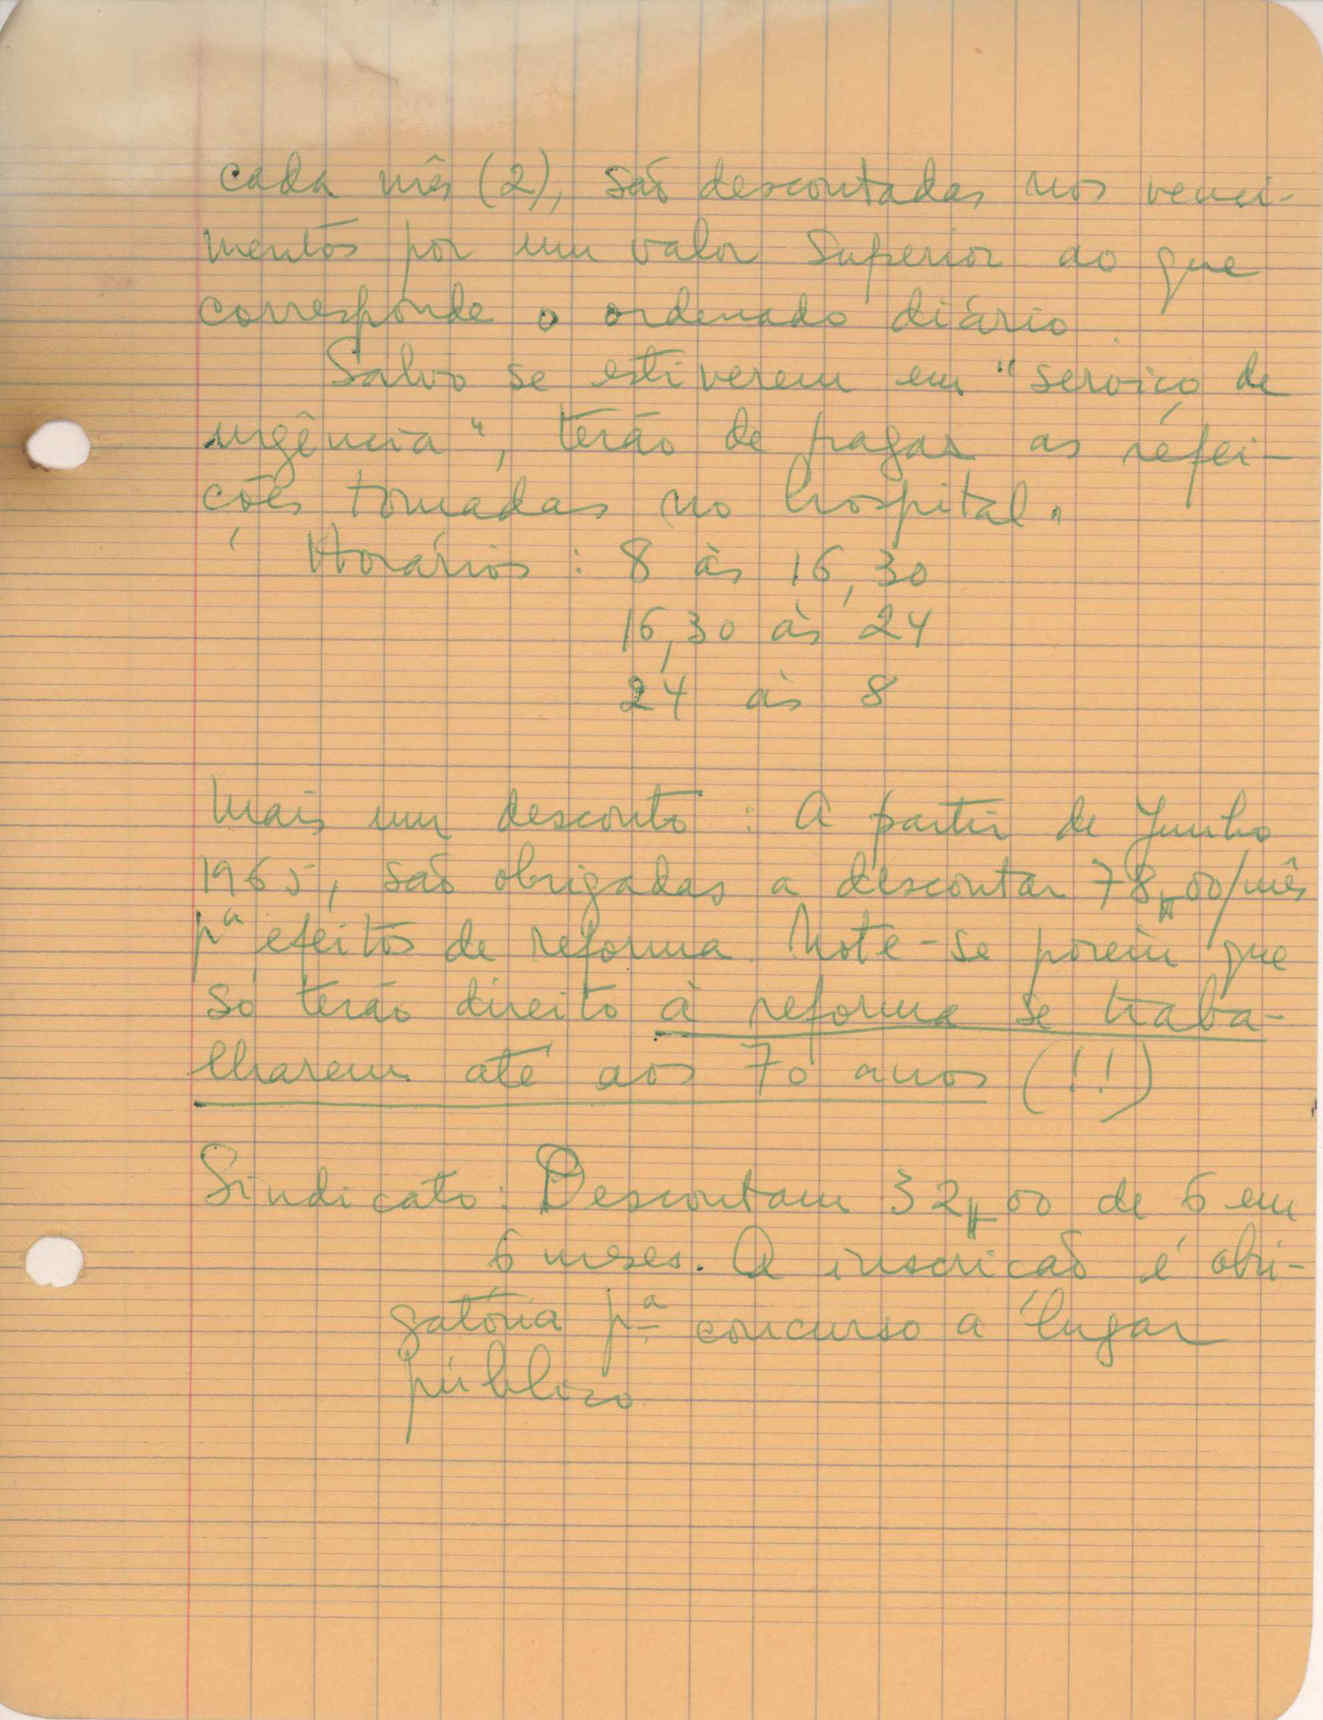 cada mês (2), são descontadas nos venci-
mentos por um valor superior ao que
corresponde o ordenado diário.
Salvo se estiverem em "serviço de
urgência", terão de pagar as refei-
ções tomadas no hospital.
Horários : 8 às 16,30
16,30 às 24
24 às 8
Mais um desconto : A partir de Junho
1965, são obrigadas a descontar 78$00/mês
pª efeitos de reforma. Note-se porém que
só terão direito à reforma se traba-
lharem até aos 70 anos (!!)
Sindicato : Descontam 32$00 de 6 em
6 meses. A inscrição é obri-
gatória pª concurso a lugar
público